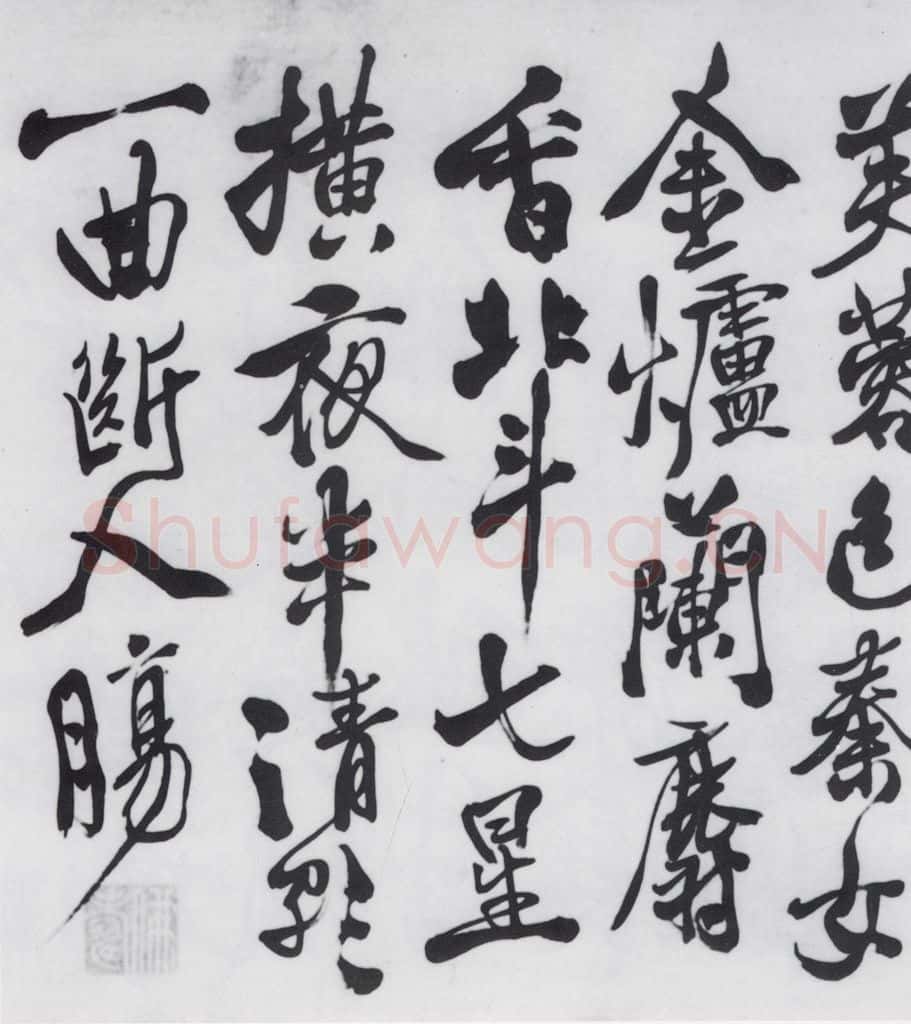 芙蓉色秦女
金爐蘭麝
香北斗七星
横夜半清歌
一曲断入腸
Shufawang.CN